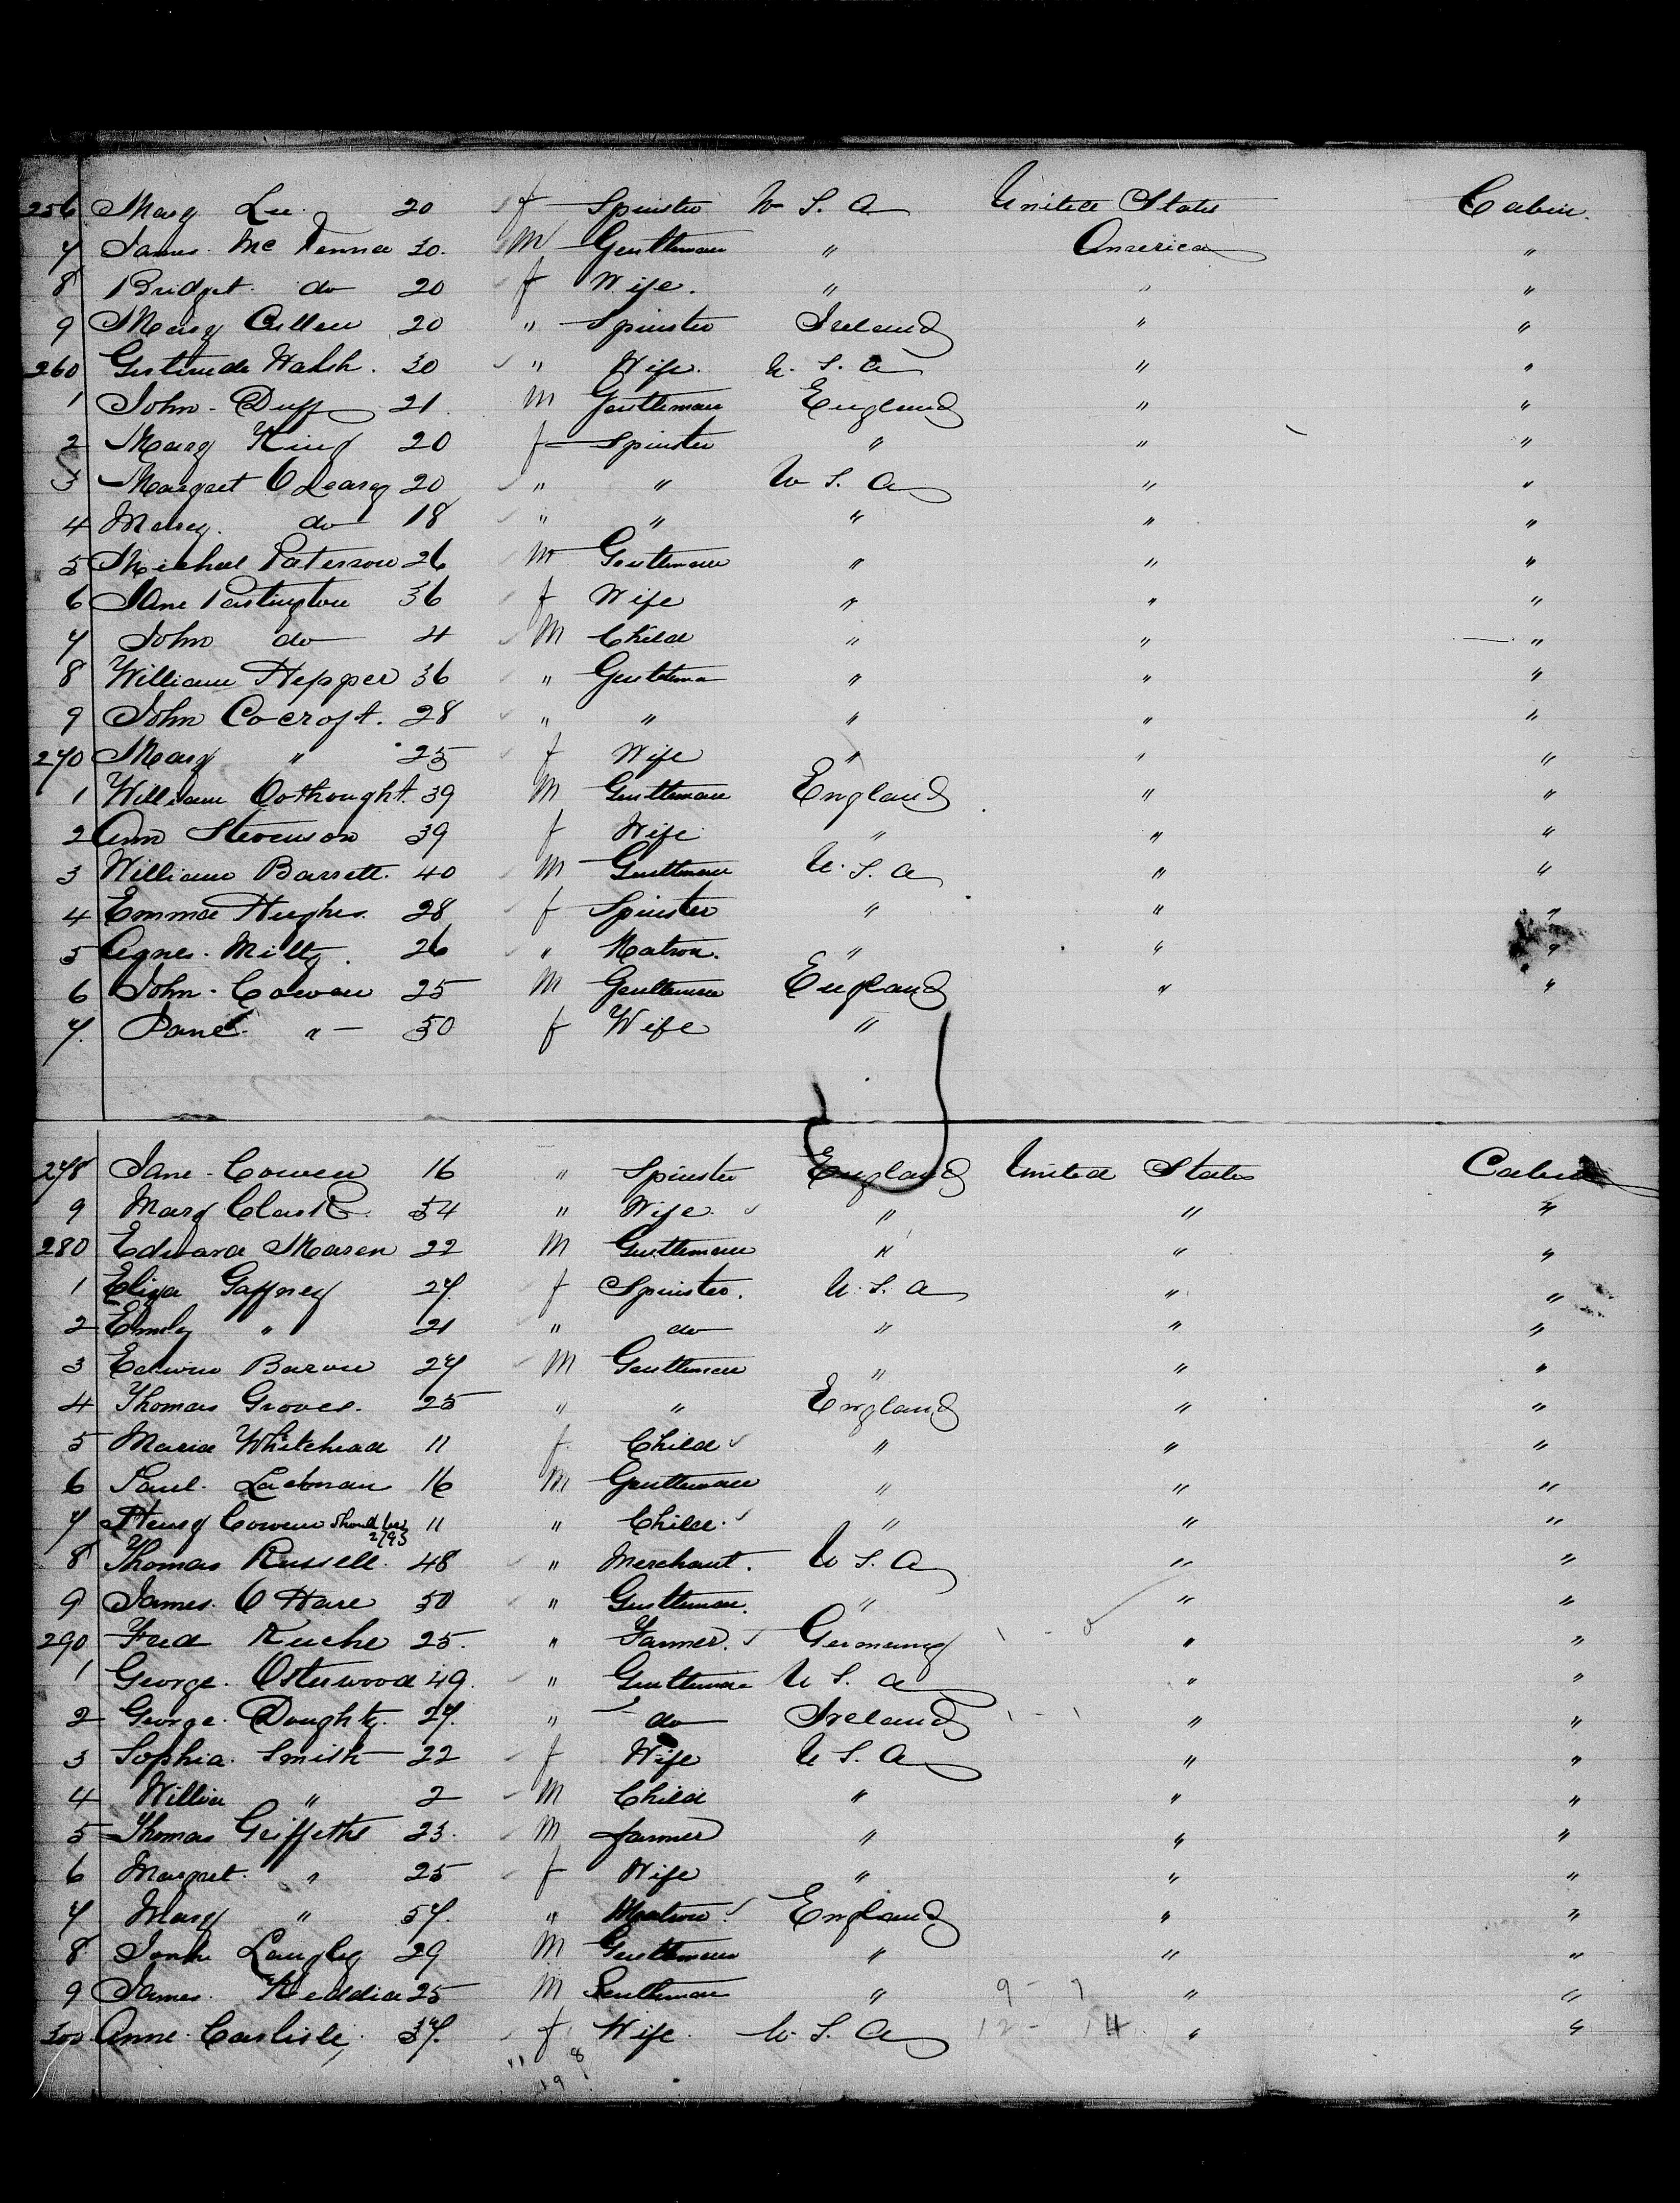 256 Mary Lee 20 f Spinster U S. A United States Cabin.
7 James Mc Kenna 30. M Gentleman " America "
8 Bridget do 20 f Wife. " " "
9 Mary Cullen 20 " Spinster Ireland " "
260 Gertrude Walsh. 30 " Wife. U. S. A " "
1 John Duff 21. M Gentleman England " "
2 Mary King 20 f Spinster " " "
3 Margret O Leary 20 " " U S. A " "
4 Mary. do 18 " " " " "
5 Michael Paterson 26 M Gentleman " " "
6 Jane Partington 36 f Wife " " "
7 John do 4 M Child " " "
8 William Hepper 36 " Gentleman " " "
9 John Cocroft. 28 " " " " "
270 Mary " 25 f Wife " " "
1 William 39 M Gentleman England " "
2 Ann Stevenson 39 f Wife " " "
3 William Barrett. 40 M Gentleman U. S. A " "
4 Emma Hughes. 28 f Spinster " " "
5 Agnes. 26 " Matron. " " "
6 John Cowen 25 M Gentleman England " "
7. Jane " 50 f Wife "
278 Jane Cowen 16 " Spinster England United States Cabin
9 Mary Clark 54 " Wife. " " "
280 Edward Mason 22 M Gentleman " " "
1 Eliza Gaffney 27. f Spinster. U. S. A " "
2 Emily " 21 " do " " "
3 Edwin Baron 27 M Gentleman " " "
4 Thomas Groves. 25 " " England " "
5 Maria Whitehead 11 f Child " " "
6 16 M Gentleman " " "
7 Henry Cowen should be 2793 11 " Child. " " "
8 Thomas Russell. 48 " Merchant. U S. A " "
9 James. O Hare 50 " Gentleman. " " "
290 Fred 25. " Farmer. Germany " "
1 George. Osterwood 49. " Gentleman U S. A " "
2 George. Doughty. 27. " do Ireland " "
3 Sophia. Smith 22 f Wife U S. A " "
4 Willie " 2 M Child " " "
5 Thomas Griffeths 23. M farmer " " "
6 Margret. " 25 f Wife " " "
7 Mary " 57. " Matron. England " "
8 Langley 29 M Gentleman " " "
9 James. Keddia 25 M Gentleman " 9 - 7 " "
300 Anne. Carlisle 37. f Wife. U. S. A 12 - 14 " "
11 8
19